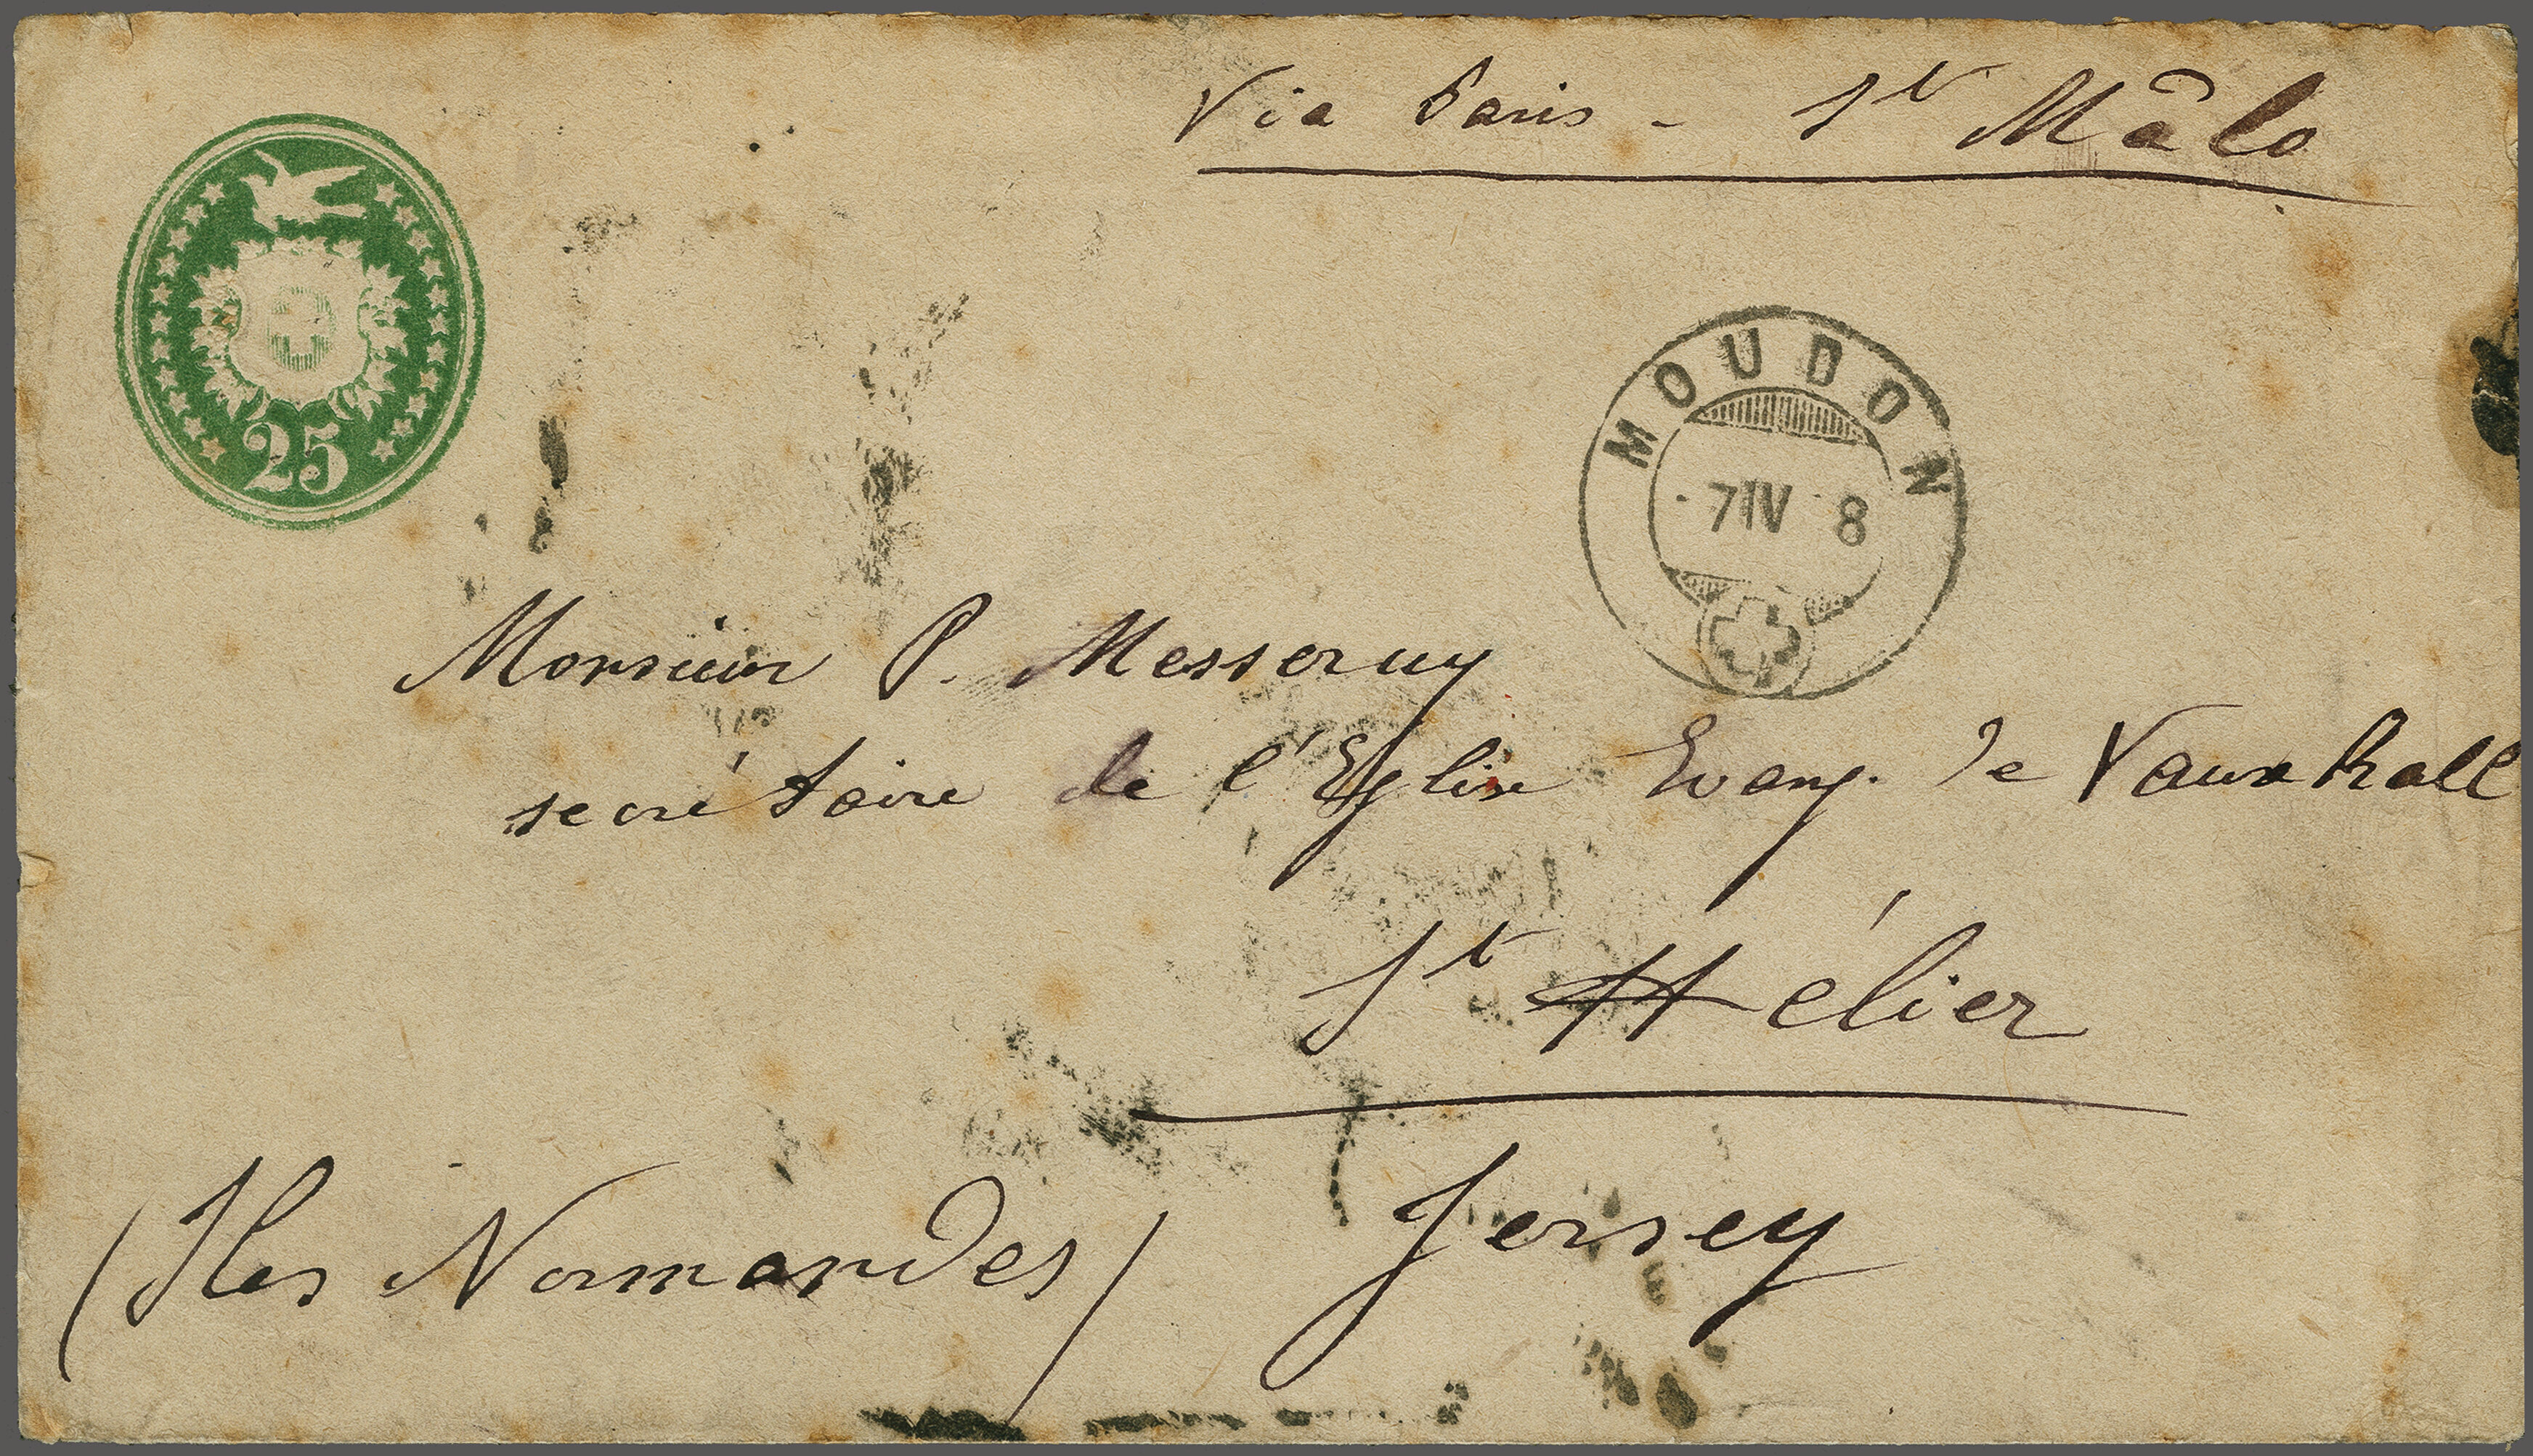 Via Paris - St Mâlo
25
MOUDON
7 IV 8
Monsieur P. Messeruy
secrétaire de l'Eglise Evang. de Vauxhall
St Hélier
(Iles Normandes) Jersey